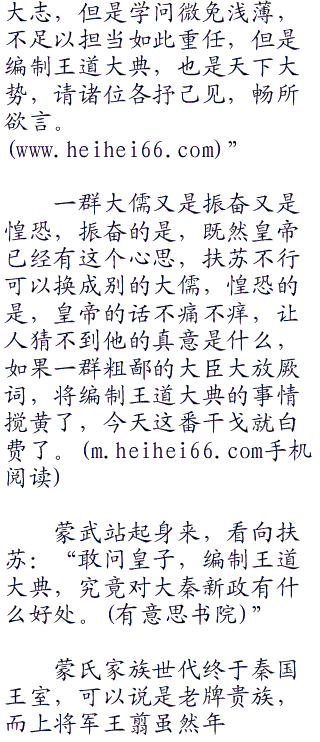 大志，但是学问微免浅薄，
不足以担当如此重任，但是
编制王道大典，也是天下大
势，请诸位各抒己见，畅所
欲言。
(www.heihei66.com)”
一群大儒又是振奋又是
惶恐，振奋的是，既然皇帝
已经有这个心思，扶苏不行
可以换成别的大儒，惶恐的
是，皇帝的话不痛不痒，让
人猜不到他的真意是什么，
如果一群粗鄙的大臣大放厥
词，将编制王道大典的事情
搅黄了，今天这番干戈就白
费了。(m.heihei66.com手机
阅读)
蒙武站起身来，看向扶
苏：“敢问皇子，编制王道
大典，究竟对大秦新政有什
么好处。(有意思书院)”
蒙氏家族世代终于秦国
王室，可以说是老牌贵族，
而上将军王翦虽然年